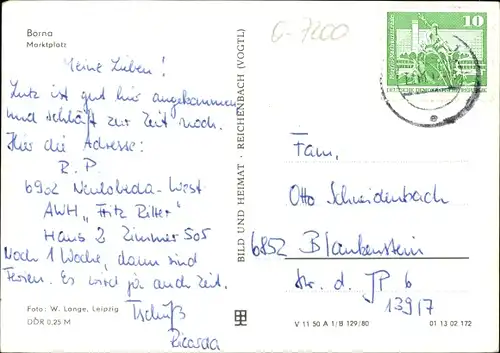 Borna
Marktplatz
Meine Lieben!
Lutz ist gut hier angekommen
und schläft zur Zeit noch.
Hier die Adresse:
R. P.
6902 Neulobeda-West
AWH „Fritz Ritter"
Haus 2 Zimmer 505
Noch 1 Woche, dann sind
Ferien. Es wird ja auch Zeit.
Tschüß
Ricarda
Foto: W. Lange, Leipzig
DDR 0,25 M
BILD UND HEIMAT · REICHENBACH (VOGTL)
G-7200
10
DEUTSCHE DEMOKRATISCHE REPUBLIK
Fam.
Otto Schneidenbach
6852 Blankenstein
Str. d. JP 6
13917
V 11 50 A 1/B 129/80
01 13 02 172